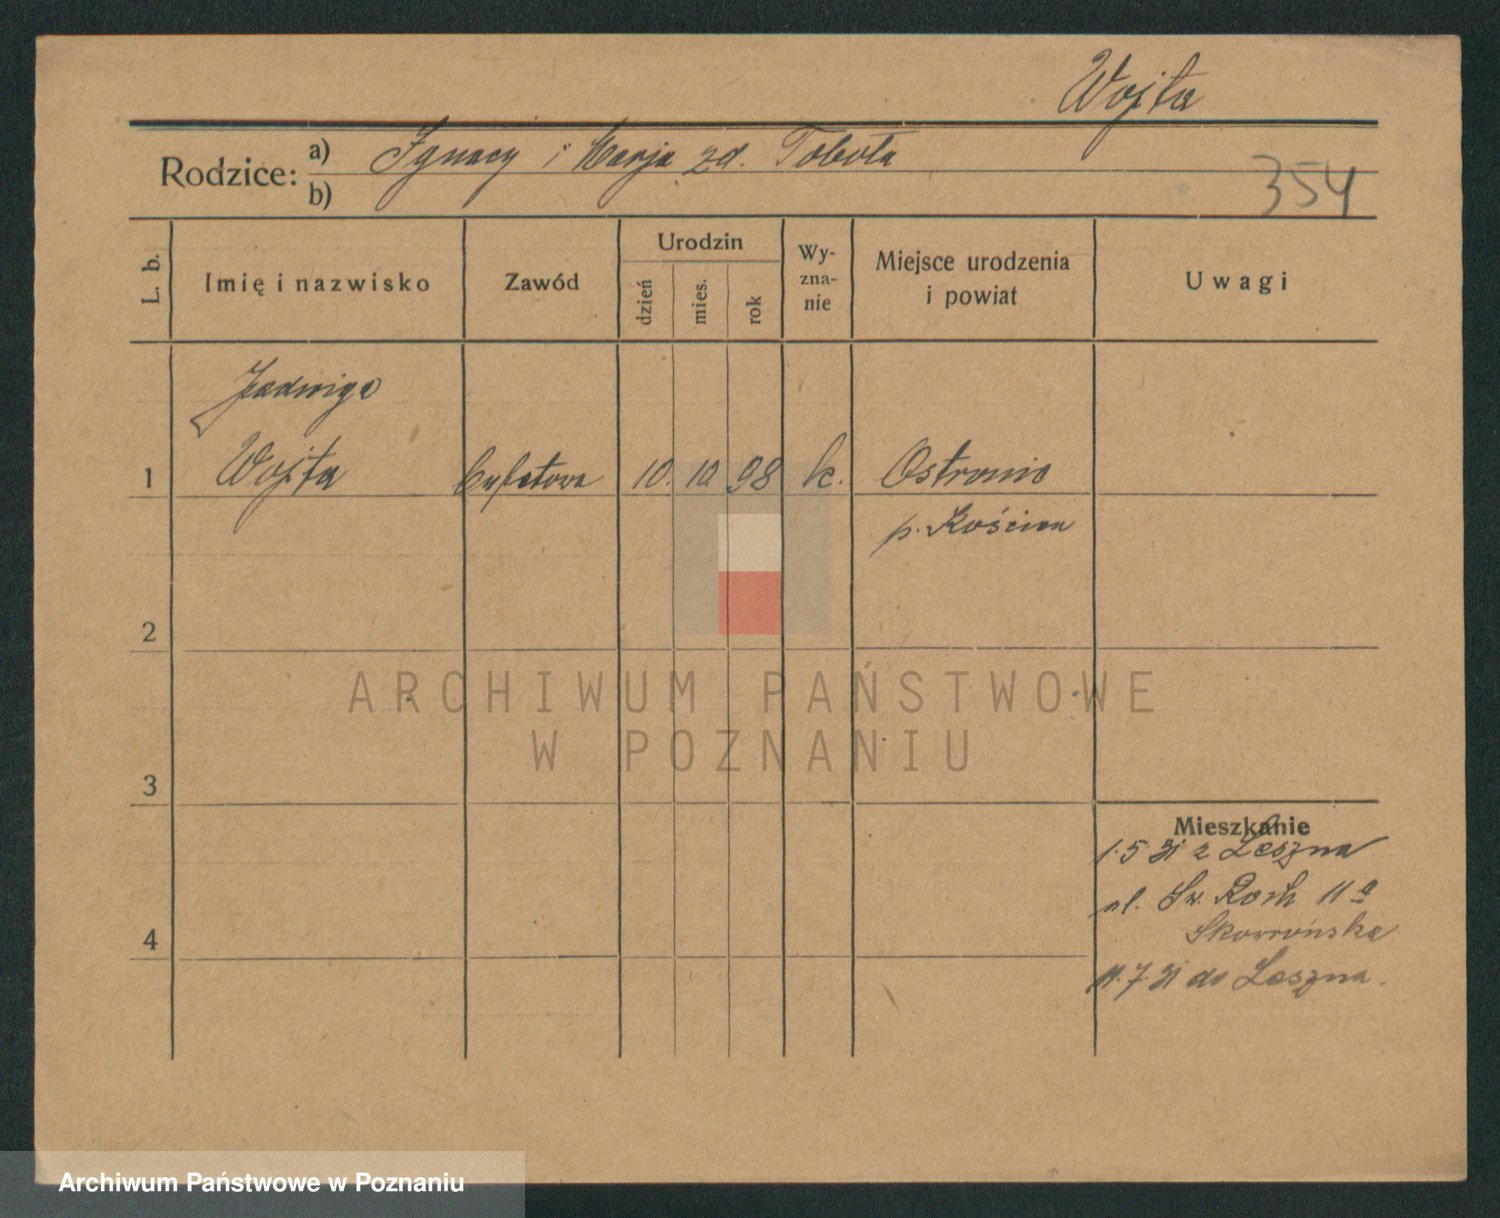 Wojta
Rodzice: a) Ignacy i Marja zd. Toboła
b)
354
L. b.
Imię i nazwisko
Zawód
Urodzin
dzień
mies.
rok
Wy-
zna-
nie
Miejsce urodzenia
i powiat
Uwagi
Jadwiga
1 Wojta bufetowa 10. 10 98 k. Ostrowo
p. Kościan
2
ARCHIWUM PAŃSTWOWE
W POZNANIU
3
Mieszkanie
1.5 31 z Leszna
ul. Św. Roch 11a
Skowrońska
4
11.7.31 do Leszna.
Archiwum Państwowe w Poznaniu